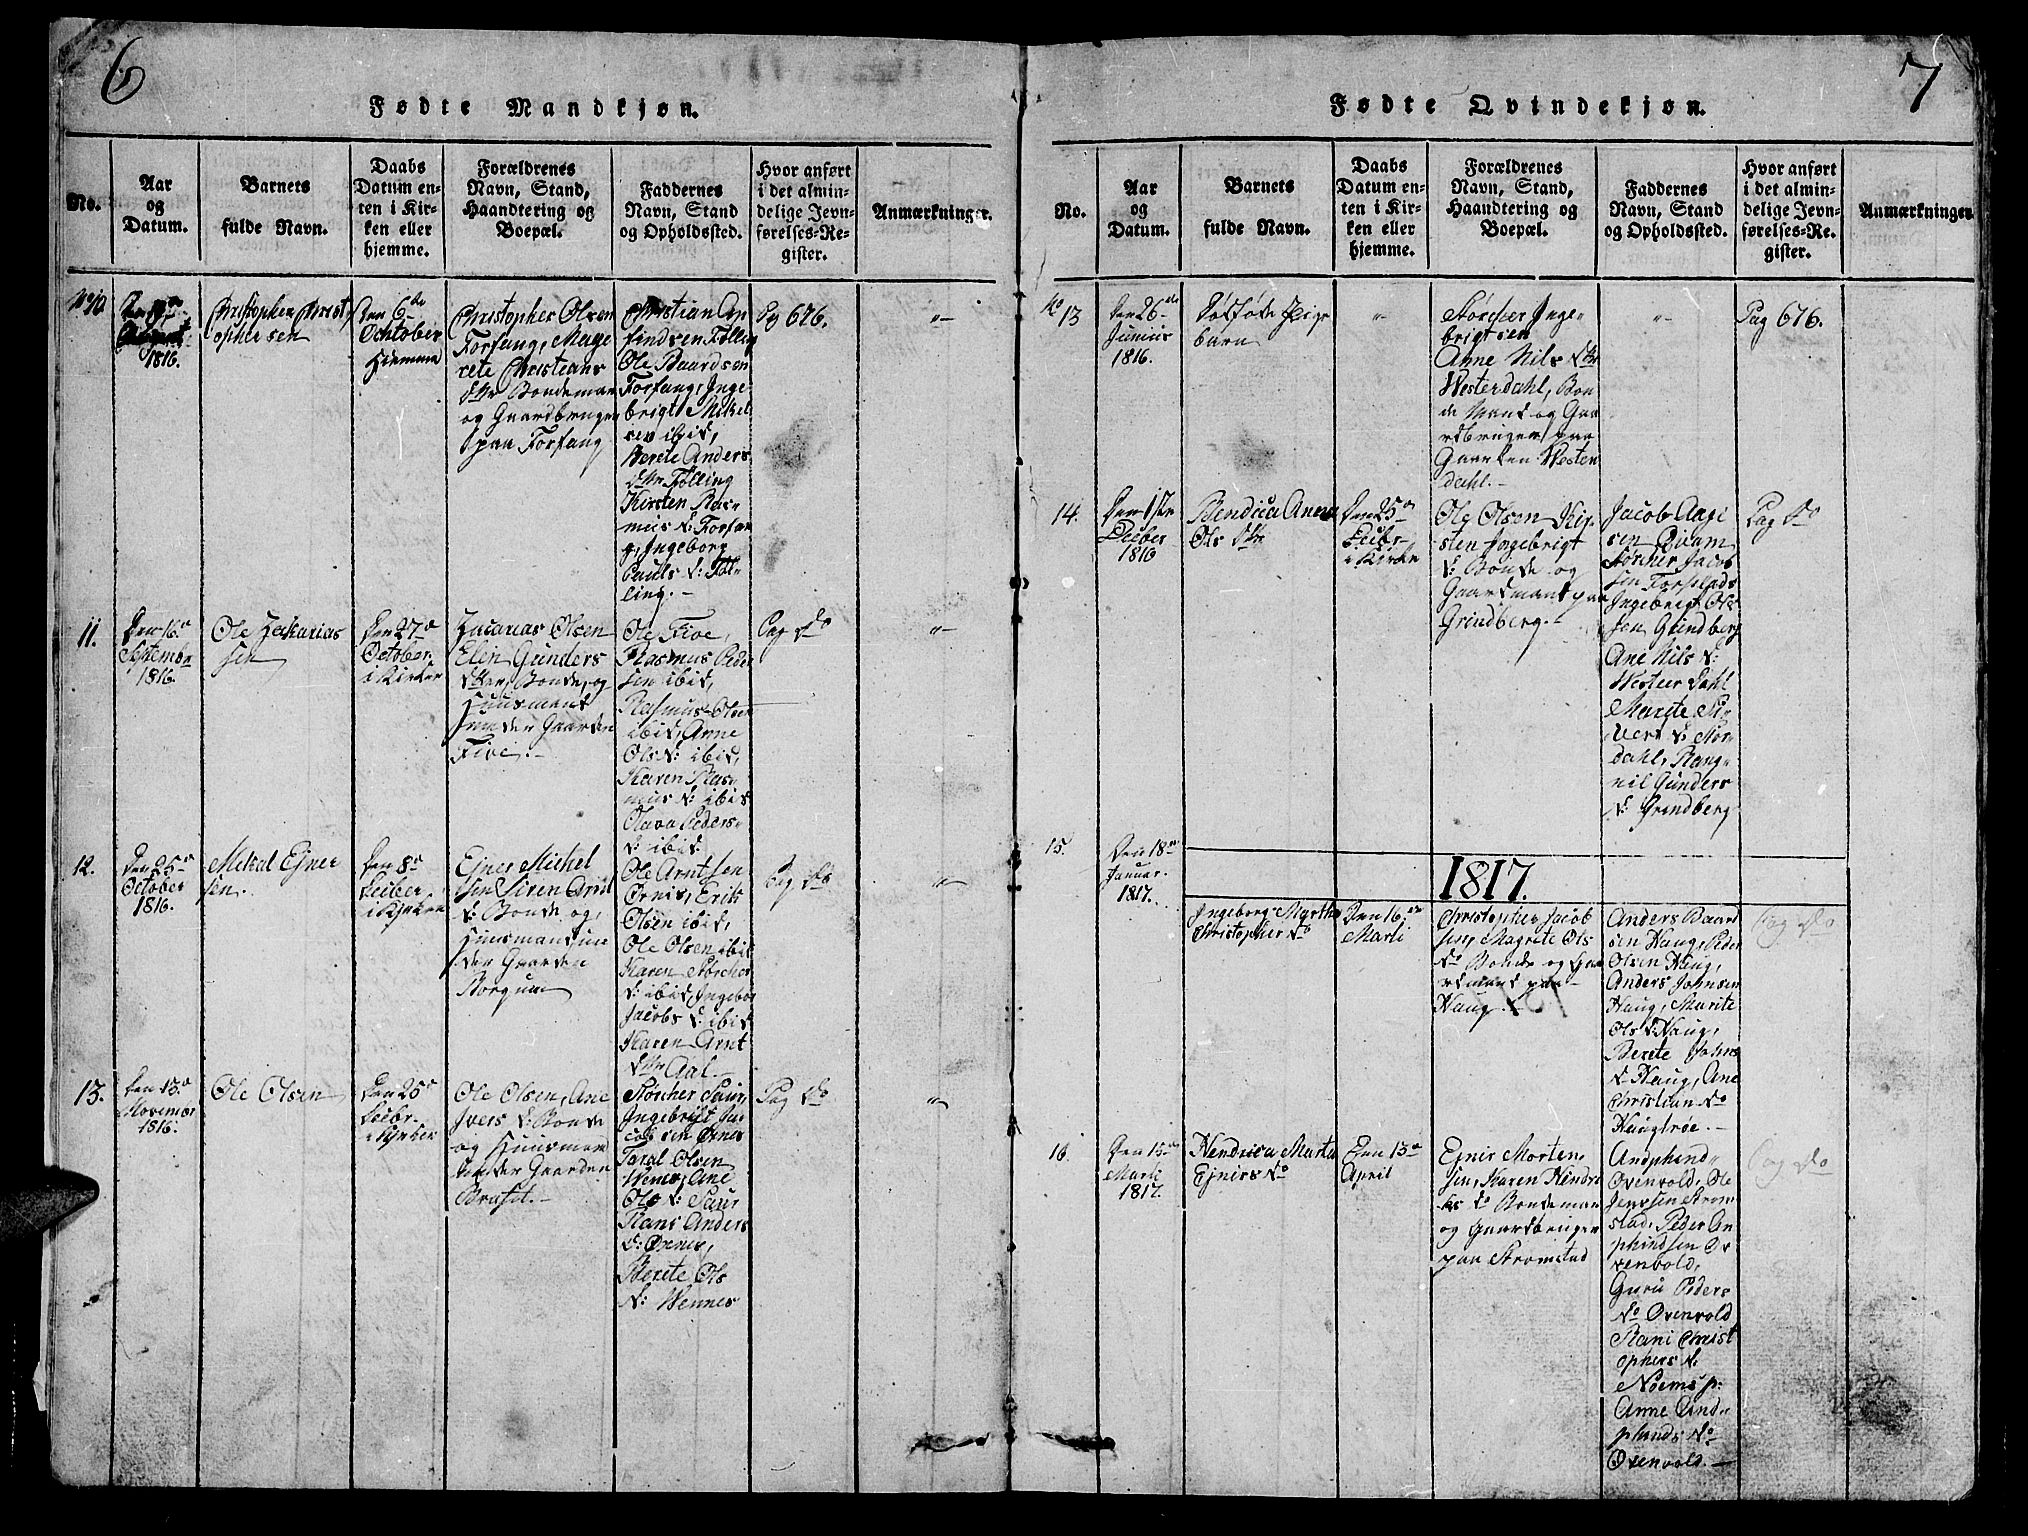 6
Fødte Mandkjøn.
No.
Aar
og
Datum.
Barnets
fulde Navn.
Daabs
Datum en-
ten i Kir-
ken eller
hjemme.
Forældrenes
Navn, Stand,
Haandtering og
Boepæl.
Faddernes
Navn, Stand
og Opholdssted.
Hvor anført
i det almin-
delige Jevn-
førelses-Re-
gister.
Anmærkninger.
No 10
1816.
Christopher Christ
ophersen
Den 6de
Ochtober
Hiemme
Christopher Olsen
Forfang, Mage
rete Christians
dtr Bondeman
og Gaardbruger
paa Forfang
Christian An
findsen Følling
Ole Baardsen
Forfang, Inge
brigt Mikel
sen ibid,
Berete Anders
dtr Følling
Kirsten Ras-
mus d: Forfan
g, Ingeborg
Pauls d: Føl-
ling.-
Pag 676.
-"-
11.
Den 16de
Septembr
1816.
Ole Zakarias
sen
Den 27de
October
i Kirken
Zacarias Olsen
Elen Gunders
dter, Bonde, og
Huusmand
under Gaarden
Five.-
Ole Five,
Rasmus Peder
sen ibid,
Rasmus Olsen
ibid, Anne
Ols d: ibid,
Karen Ras-
mus d: ibid
Olava Peders-
d: ibid
Pag do
-"-
12.
Den 25de
October
1816.
Mikal Ejner
sen.
Den 8de
Deciber
i Kirken
Ejner Michel
sen Siren Arnt
d: Bonde og
Huusmand un
der Gaarden
Borgum
Ole Arntsen
Ørnis, Erik
Olsen ibid,
Ole Olsen ibid
Karen Størcher
d: ibid, Ingebor
Jacobs d: ibid
Karen Arnt
dtr Aal.-
Pag do
-"-
13.
Den 13de
Novembr
1816.
Ole Olsen
Den 25de
Decibr.
i Kirken
Ole Olsen, Ane
Ivers d: Bonde
og Huusman
under Gaarden
Brasit.-
Størcher Saur,
Ingebrigt Ja-
cobsen Øxnes
Taral Olsen
Wenes, Ane
Ols d: Saur
Rans Anders
d: Øxnes,
Berete Ols
d: Wennes
Pag do
-"-
7
Fødte Qvindekjøn.
No.
Aar
og
Datum.
Barnets
fulde Navn.
Daabs
Datum en-
ten i Kir-
ken eller
hjemme.
Forældrenes
Navn, Stand,
Haandtering og
Boepæl.
Faddernes
Navn, Stand
og Opholdssted.
Hvor anført
i det almin-
delige Jevn-
førelses-Re-
gister.
Anmærkninger.
No 13
Den 26de
Junius
1816.
Dødfødt Pige
barn
-"-
Størcher Inge-
brigtsen
Anne Nils dtr
Westerdahl, Bon
de Mand og Gaa
rdbruger paa
Gaarden Wester
dahl.-
-"-
Pag 676.
14.
Den 1ste
Deciber
1816
Bendicta Anna
Ols dtr
Den 25de
Decibr
i Kirken
Ole Olsen Kir-
sten Ingebrigt
d: Bonde og
Gaardmand paa
Grindberg.-
Jacob Aage
sen Qvam
Størcher Jacob
sen Forselads
Ingebrigt Ols
sen Grindberg
Ane Nils d:
Wester Dahl
Marete Si-
vert d: Nor-
dahl, Rang-
nil Gunders
d: Grindberg
Pag do
15.
Den 18de
Januar.
1817.
1817.
Ingeborg Martha
Christopher do
Den 16de
Marti
Christopher Jacob
sen, Magrete Ols
do Bonde og Gaa
rdmand paa
Haug.-
Anders Baar
sen Haug, Peder
Olsen Haug,
Anders Johnsen
Haug, Marite
Ols d: Haug,
Berete Johns
d: Haug, Ane
Christian do
Haugtrøe.-
Pag do
16.
Den 15de
Marti
1817.
Hendrica Marta
Ejnirs do
Den 13de
April
Ejnir Morten-
sen, Karen Hendri
ks do Bondeman
og Gaardbruger
paa Strømstad
Andphend-
Oxenvold, Ole
Jenssen Strøm
stad, Peder An
phindsen Ox
venvold,
Guru Peders
do Oxenvold
Rani Christ
ophers d:
Nøems p:
Anne And-
phinds do
Oxenvold.-
Pag do